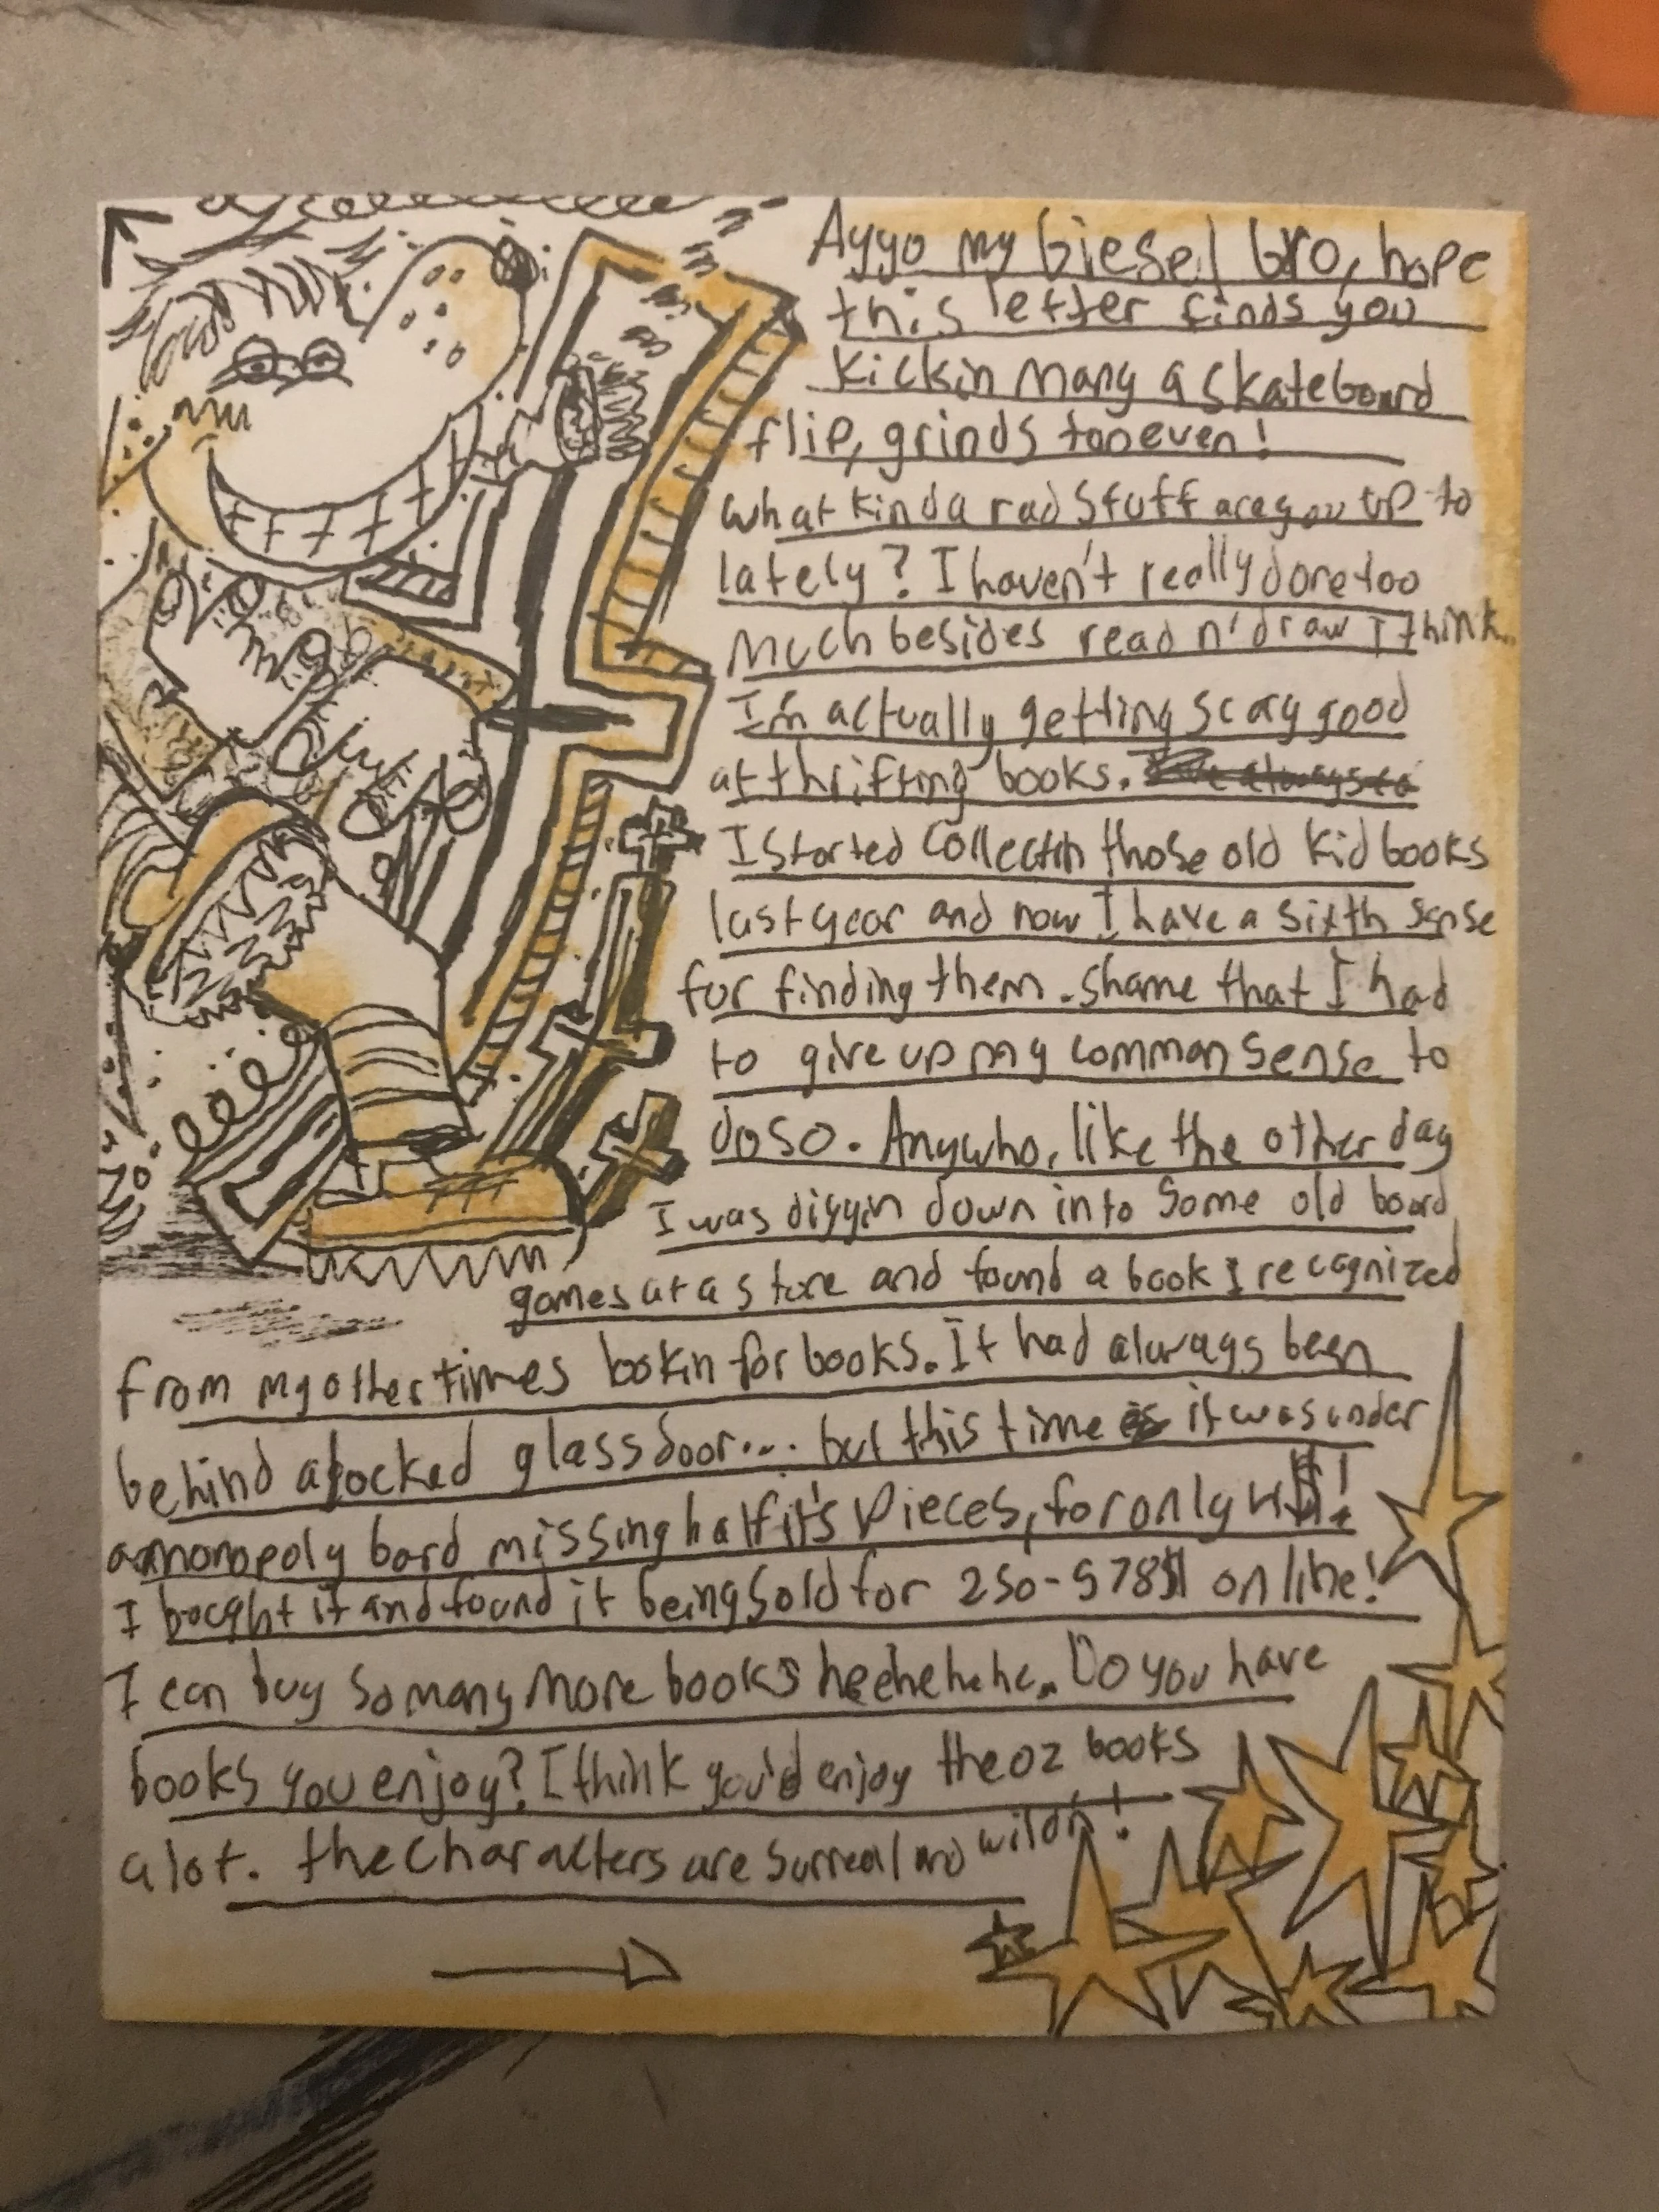 Ayyo my Giesel bro, hope
this letter finds you
kickin many a skateboard
flip, grinds too even!
what kinda rad stuff are you up to
lately? I haven't really done too
much besides read n' draw I think.
I'm actually getting scary good
at thrifting books.
I started collectin those old kid books
last year and now I have a sixth sense
for finding them. shame that I had
to give up my common sense to
do so. Anywho, like the other day
I was diggin down into some old board
games at a store and found a book I recognized
from my other times lookin for books. It had always been
behind a locked glass door... but this time it was under
a monopoly bord missing half it's pieces, for only 4$!
I bought it and found it being sold for 250-578$ online!
I can buy so many more books heehehehe. Do you have
books you enjoy? I think you'd enjoy the oz books
a lot. the characters are surreal and wildn!